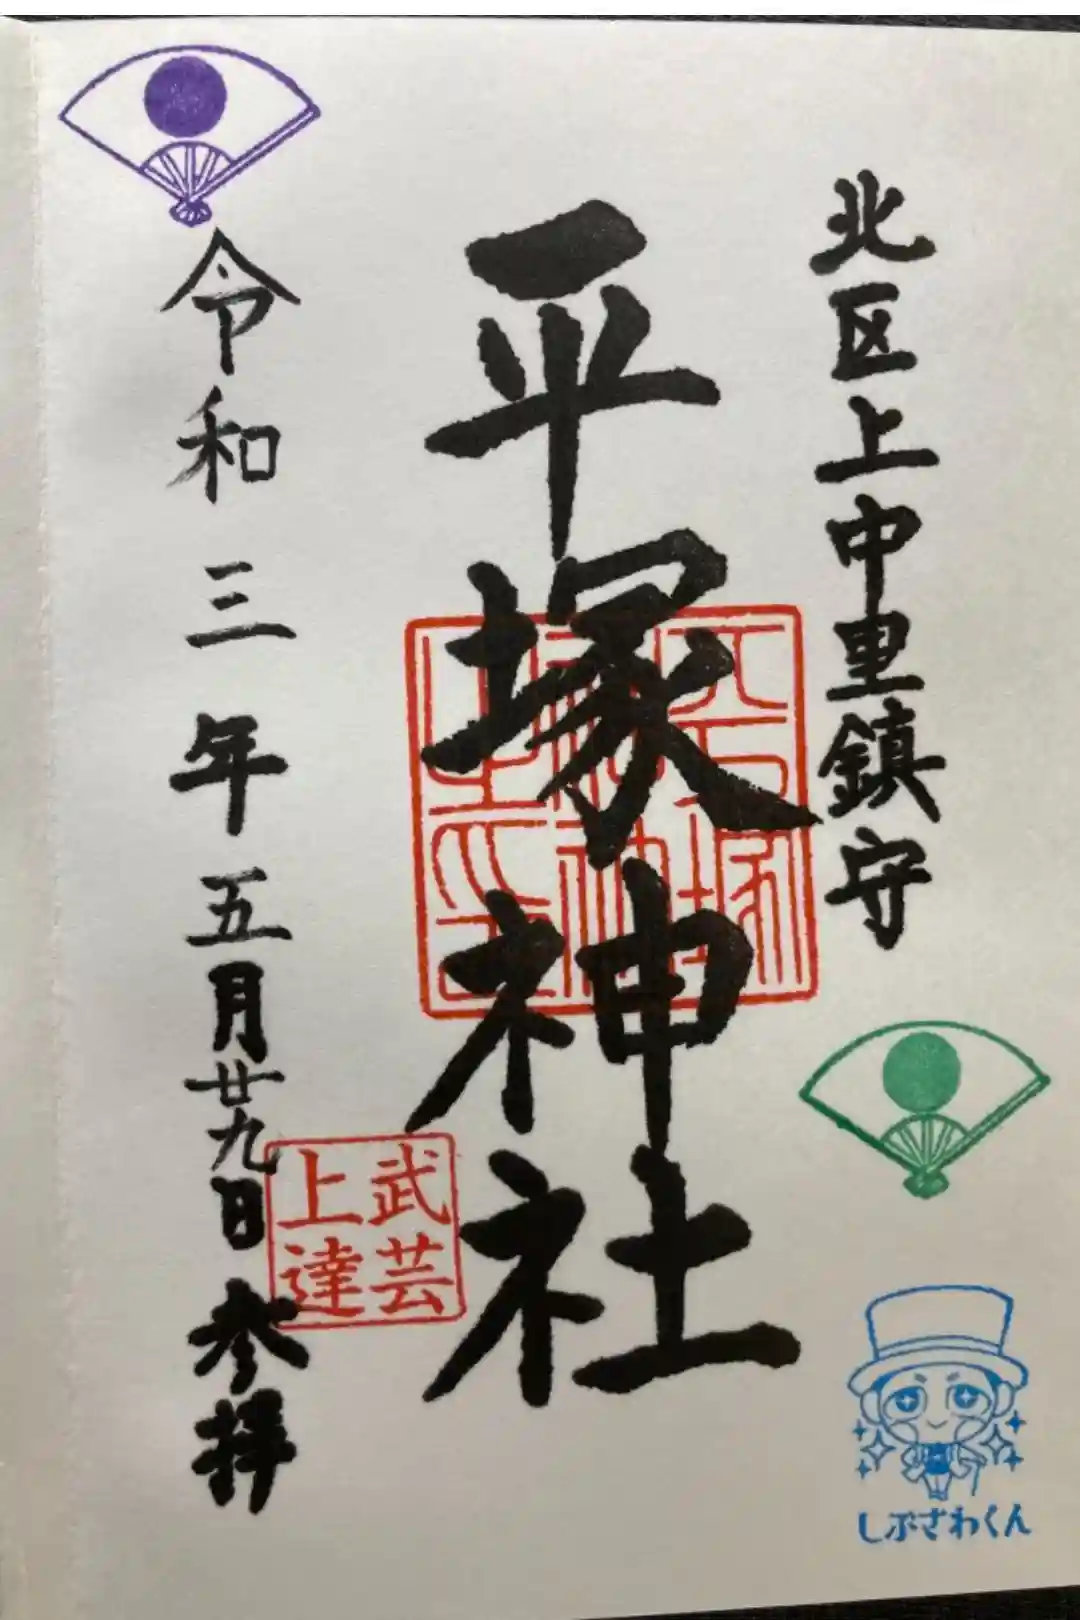 北区上中里鎮守
平塚神社
平塚神社之印
武芸上達
令和三年五月廿九日参拝
しぶさわくん